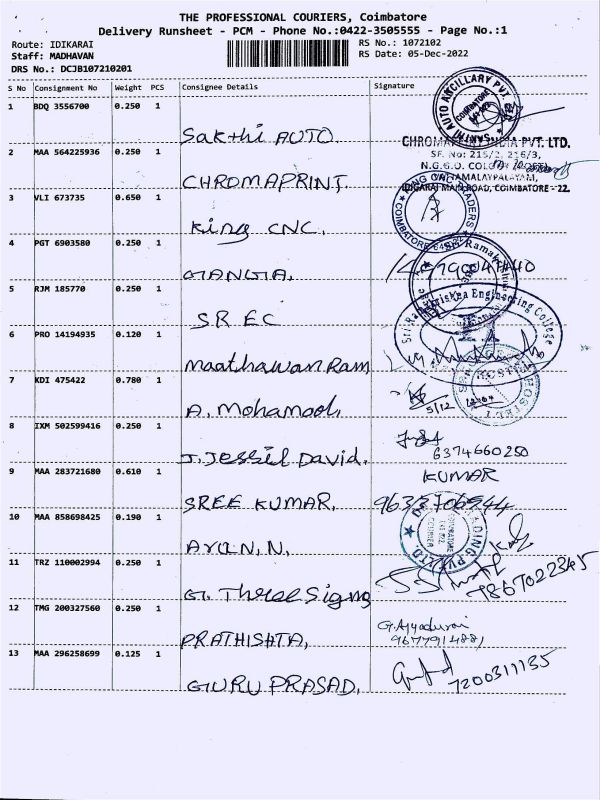 THE PROFESSIONAL COURIERS, Coimbatore
Delivery Runsheet - PCM - Phone No.:0422-3505555 - Page No.:1
Route: IDIKARAI
Staff: MADHAVAN
DRS No.: DCJB107210201
RS No.: 1072102
RS Date: 05-Dec-2022
S No Consignment No Weight PCS Consignee Details Signature
1 BDQ 3556700 0.250 1 Sakthi AUTO
CHROMAPRINT INDIA PVT. LTD.
SF. No: 215/2, 216/3,
N.G.G.O. COLONY
IDIGARAI MAIN ROAD, COIMBATORE - 22.
2 MAA 564225936 0.250 1 CHROMAPRINT
3 VLI 673735 0.650 1 King CNC.
4 PGT 6903580 0.250 1 GANGA.
5 RJM 185770 0.250 1 SREC
Sri Ramakrishna Engineering College
6 PRO 14194935 0.120 1 Maathawan Ram
7 KDI 475422 0.780 1 A. Mohamood,
5/12
8 IXM 502599416 0.250 1 J. Jessil David.
6374660250
9 MAA 283721680 0.610 1 SREE KUMAR,
KUMAR
10 MAA 858698425 0.190 1 Arun. N.
11 TRZ 110002994 0.250 1 G. Three Signs
7867022345
12 TMG 200327560 0.250 1 PRATHISHTA,
13 MAA 296258699 0.125 1 GURU PRASAD,
7200311135